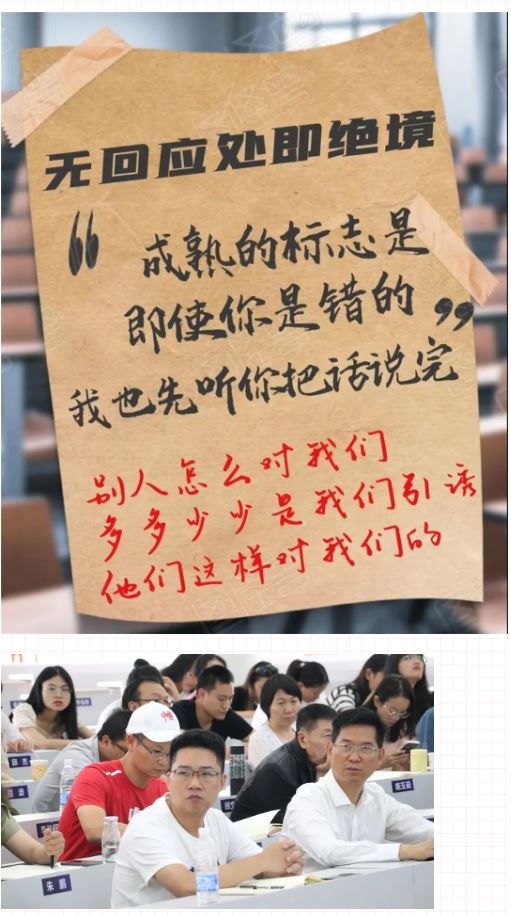 无回应处即绝境
“成熟的标志是
即使你是错的”
我也先听你把话说完
别人怎么对我们
多多少少是我们引诱
他们这样对我们的
朱鹏